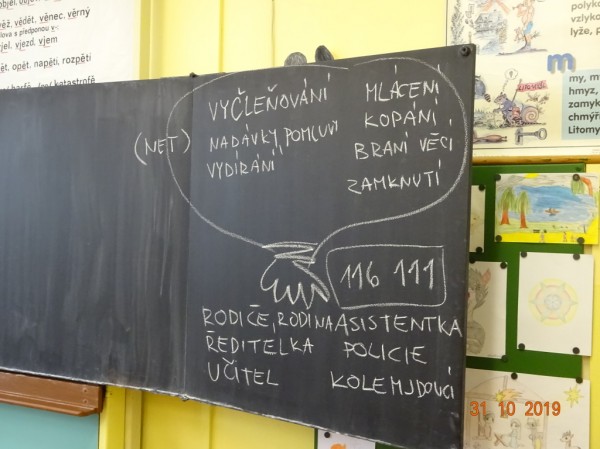 objel, objev
věž, vědět, věnec, věrný
slova s předponou v-
vjel, vjezd, vjem
pět, opět, napětí, rozpětí
VYČLEŇOVÁNÍ
NADÁVKY, POMLUVY
(NET)
VYDÍRÁNÍ
MLÁCENÍ
KOPÁNÍ
BRANÍ VĚCÍ
ZAMKNUTÍ
116 111
RODIČE, RODINA ASISTENTKA
ŘEDITELKA POLICIE
UČITEL KOLEMJDOUCÍ
polyka
vzlyko
lyže, p
m
my, m
hmyz,
zamyk
chmýří
Litomy
31 10 2019